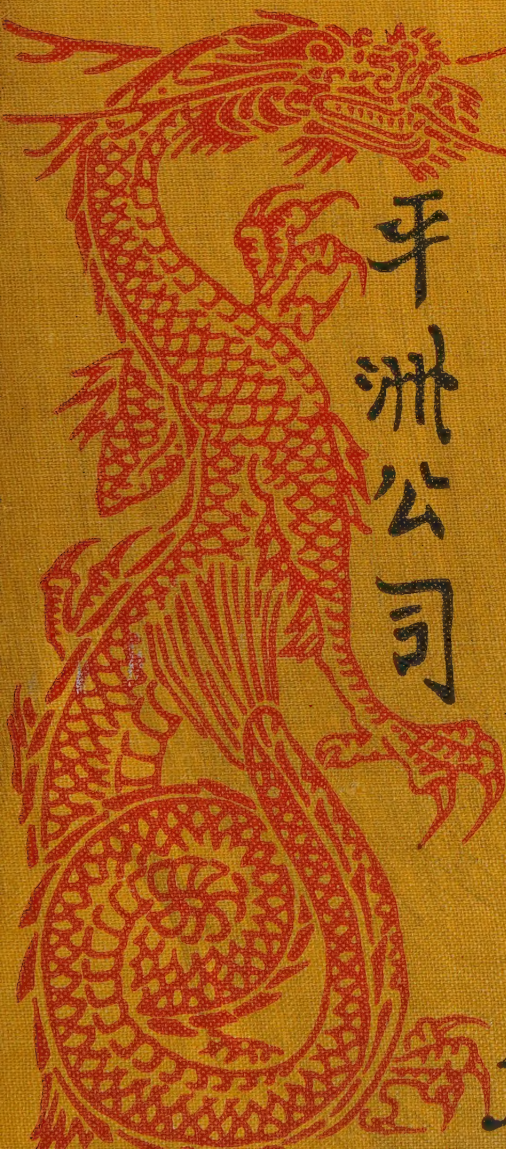 平洲公司